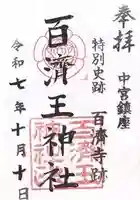 奉拝
中宮鎮座
特別史跡
百済寺跡
百濟王神社
令和七年十月十日